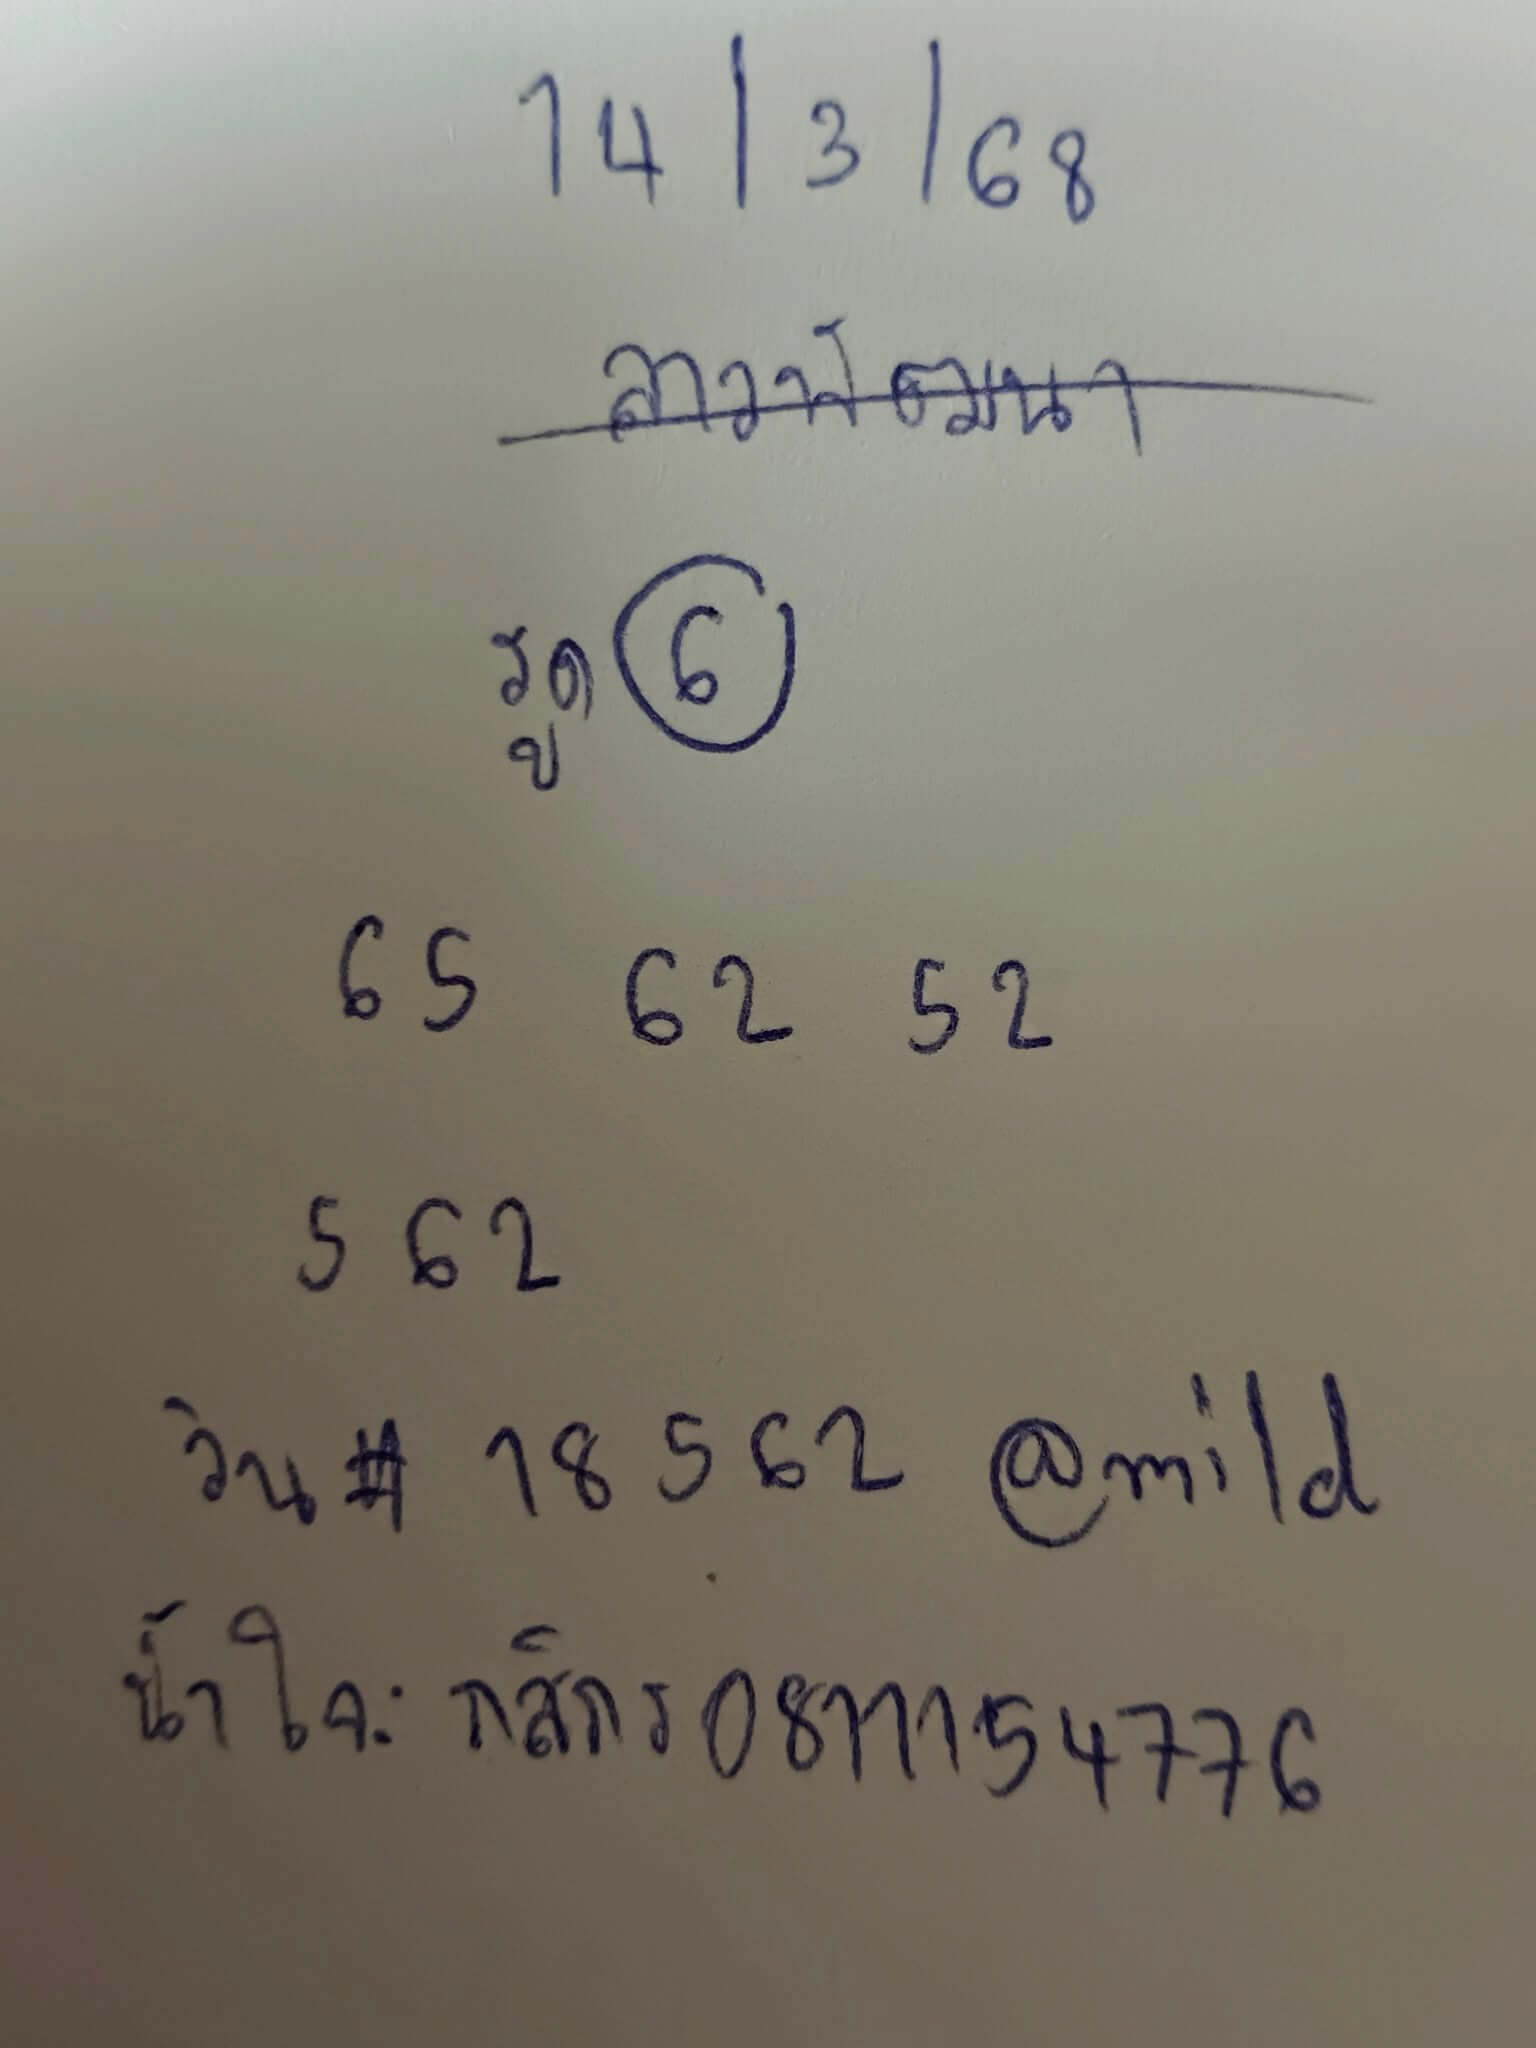 14/3/68
ลาวพัฒนา
รูด 6
65 62 52
562
วิน # 18562 @mild
น้ำใจ: กสิกร 0811154776